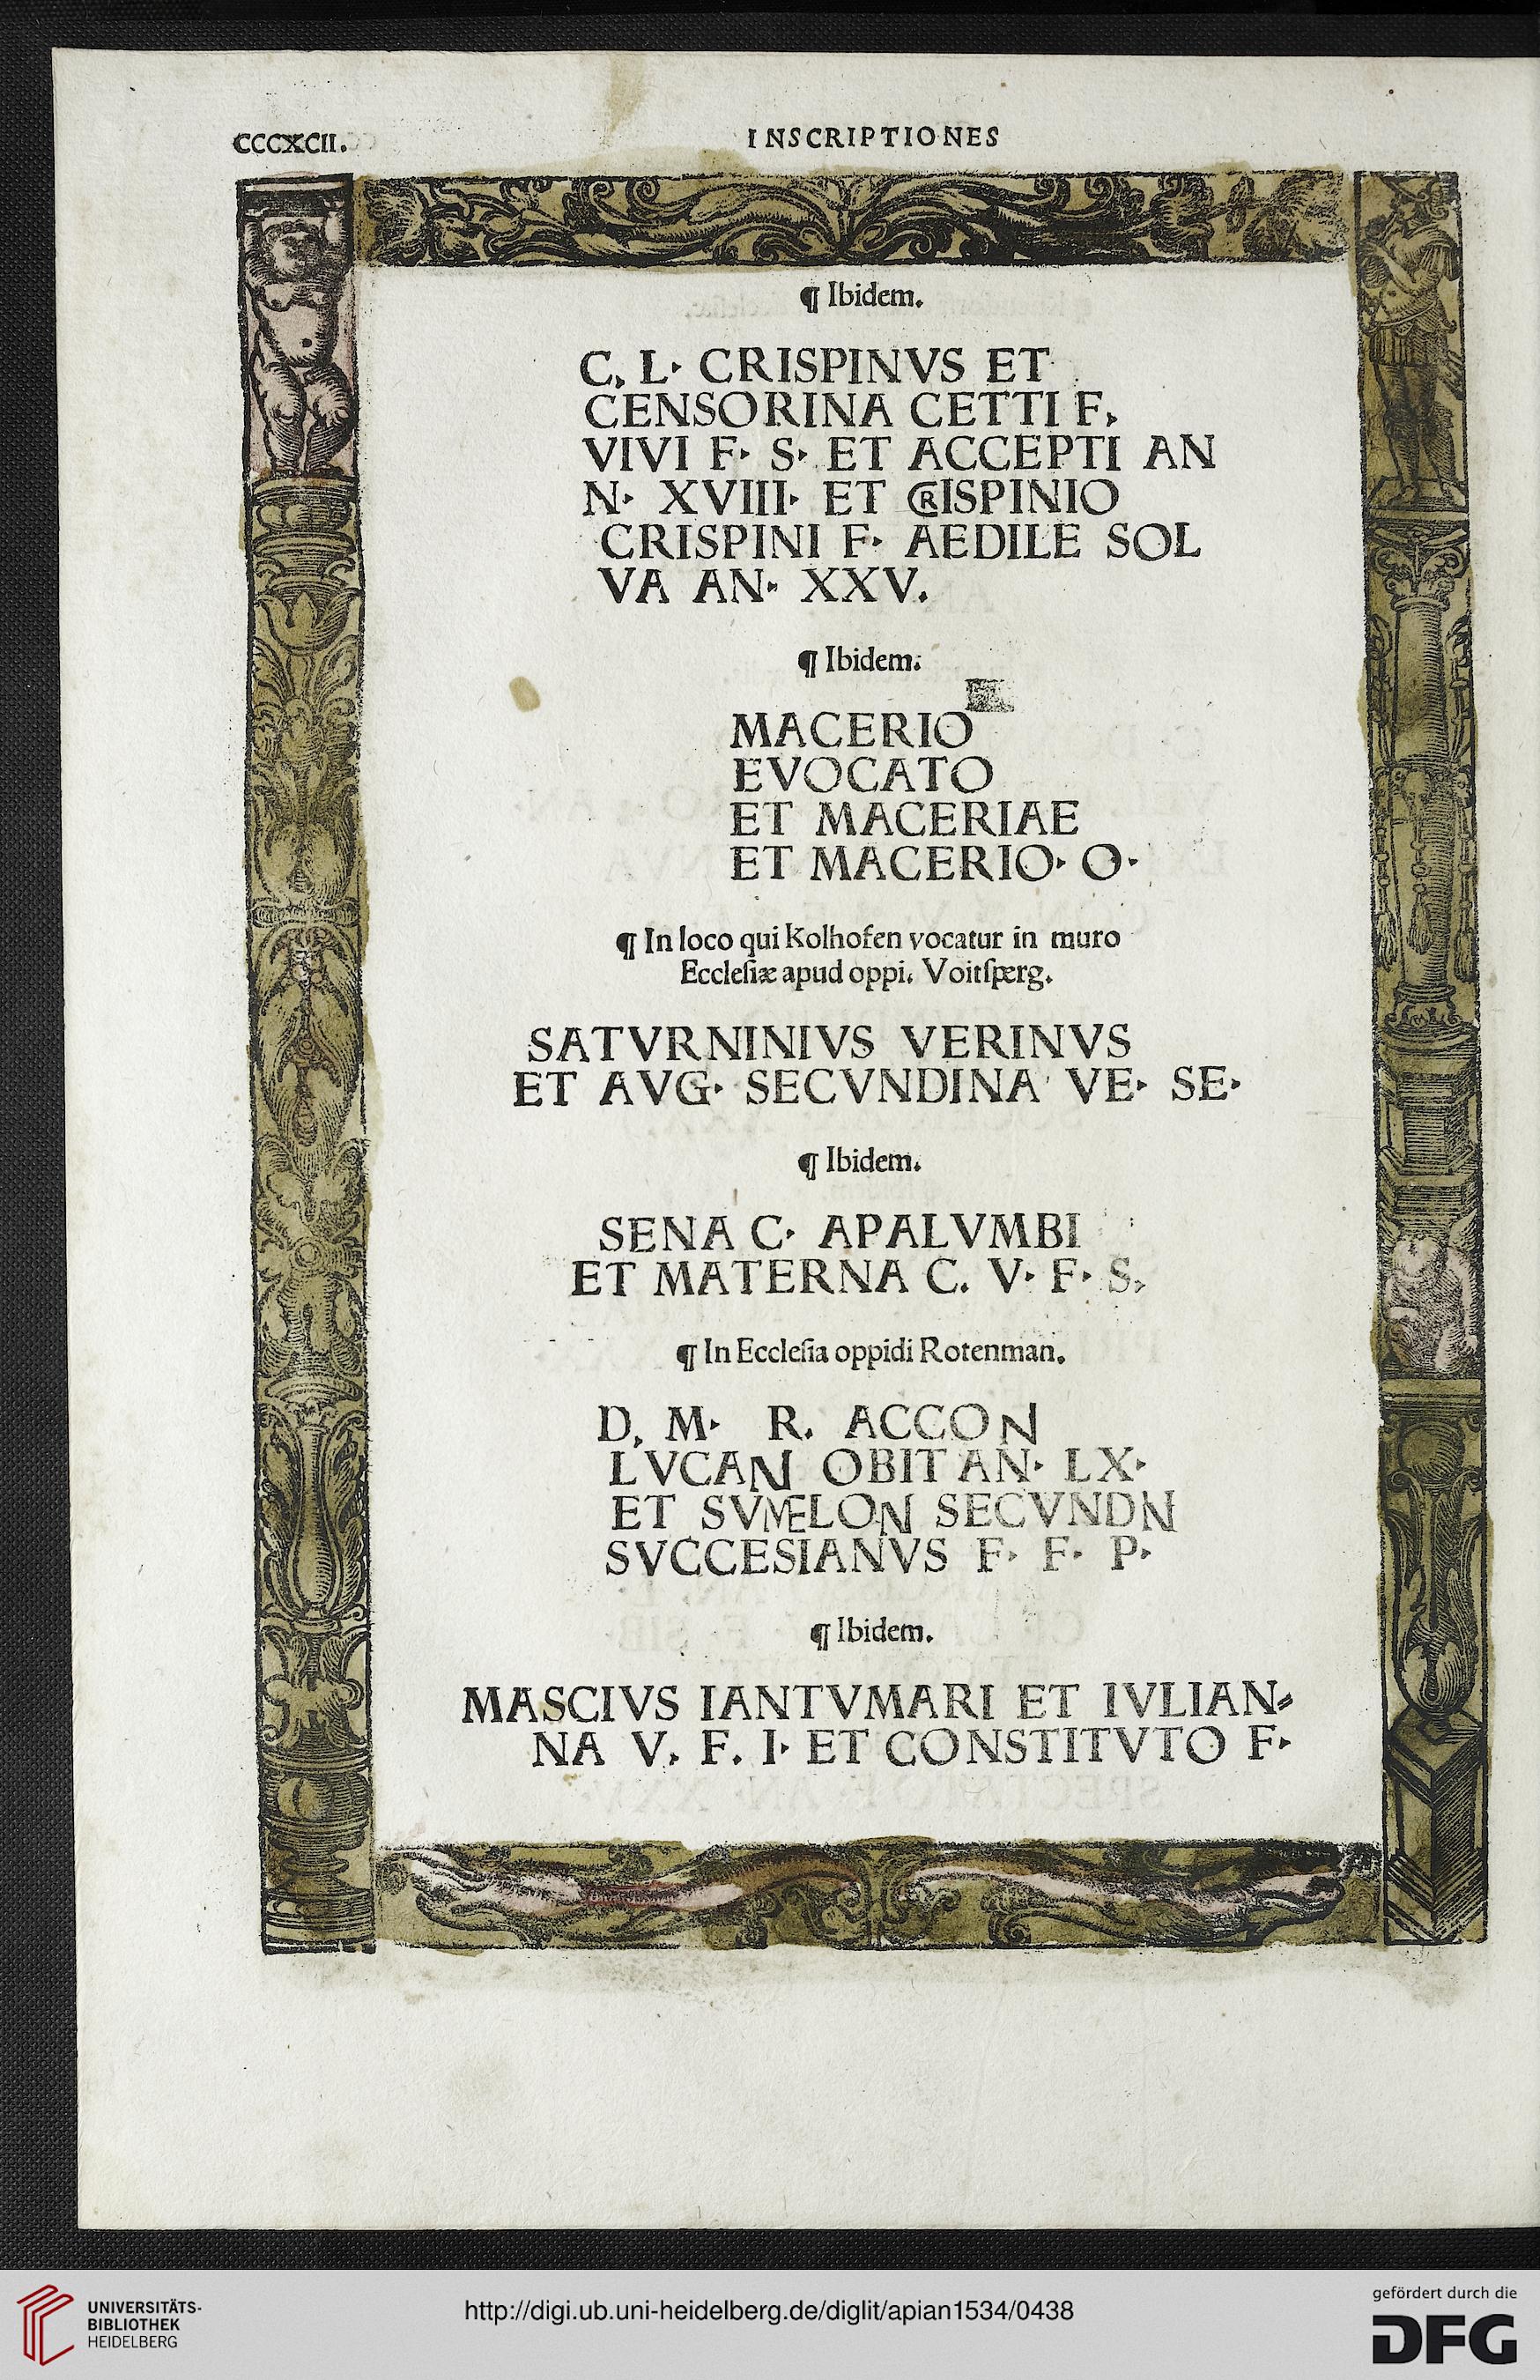 CCCXCII.
INSCRIPTIONES
¶ Ibidem.
C. L· CRISPINVS ET
CENSORINA CETTI F.
VIVI F· S· ET ACCEPTI AN
N· XVIII· ET CRISPINIO
CRISPINI F· AEDILE SOL
VA AN· XXV.
¶ Ibidem.
MACERIO
EVOCATO
ET MACERIAE
ET MACERIO· O·
¶ In loco qui Kolhofen vocatur in muro
Eccleſiæ apud oppi. Voitſperg.
SATVRNINIVS VERINVS
ET AVG· SECVNDINA VE· SE·
¶ Ibidem.
SENA C· APALVMBI
ET MATERNA C. V· F· S.
¶ In Eccleſia oppidi Rotenman.
D. M· R. ACCON
LVCAN OBIT AN· LX·
ET SVMELON SECVNDN
SVCCESIANVS F· F· P·
¶ Ibidem.
MASCIVS IANTVMARI ET IVLIAN⸗
NA V. F. I· ET CONSTITVTO F·
UNIVERSITÄTS-
BIBLIOTHEK
HEIDELBERG
http://digi.ub.uni-heidelberg.de/diglit/apian1534/0438
gefördert durch die
DFG